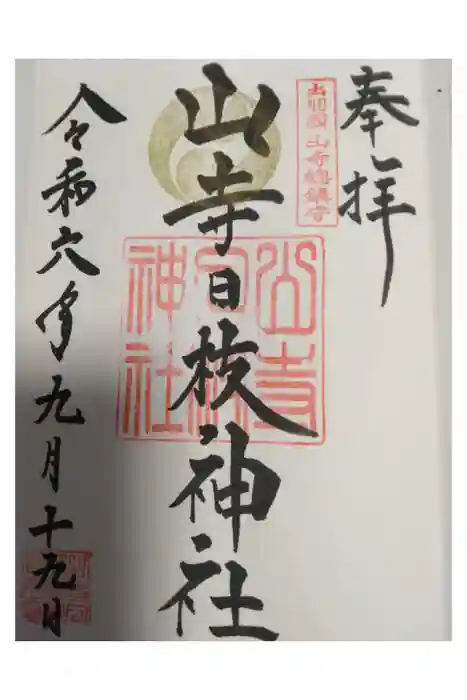 奉拝
出羽國山寺總鎮守
山寺日枝神社
山寺日枝神社
令和六年九月十九日